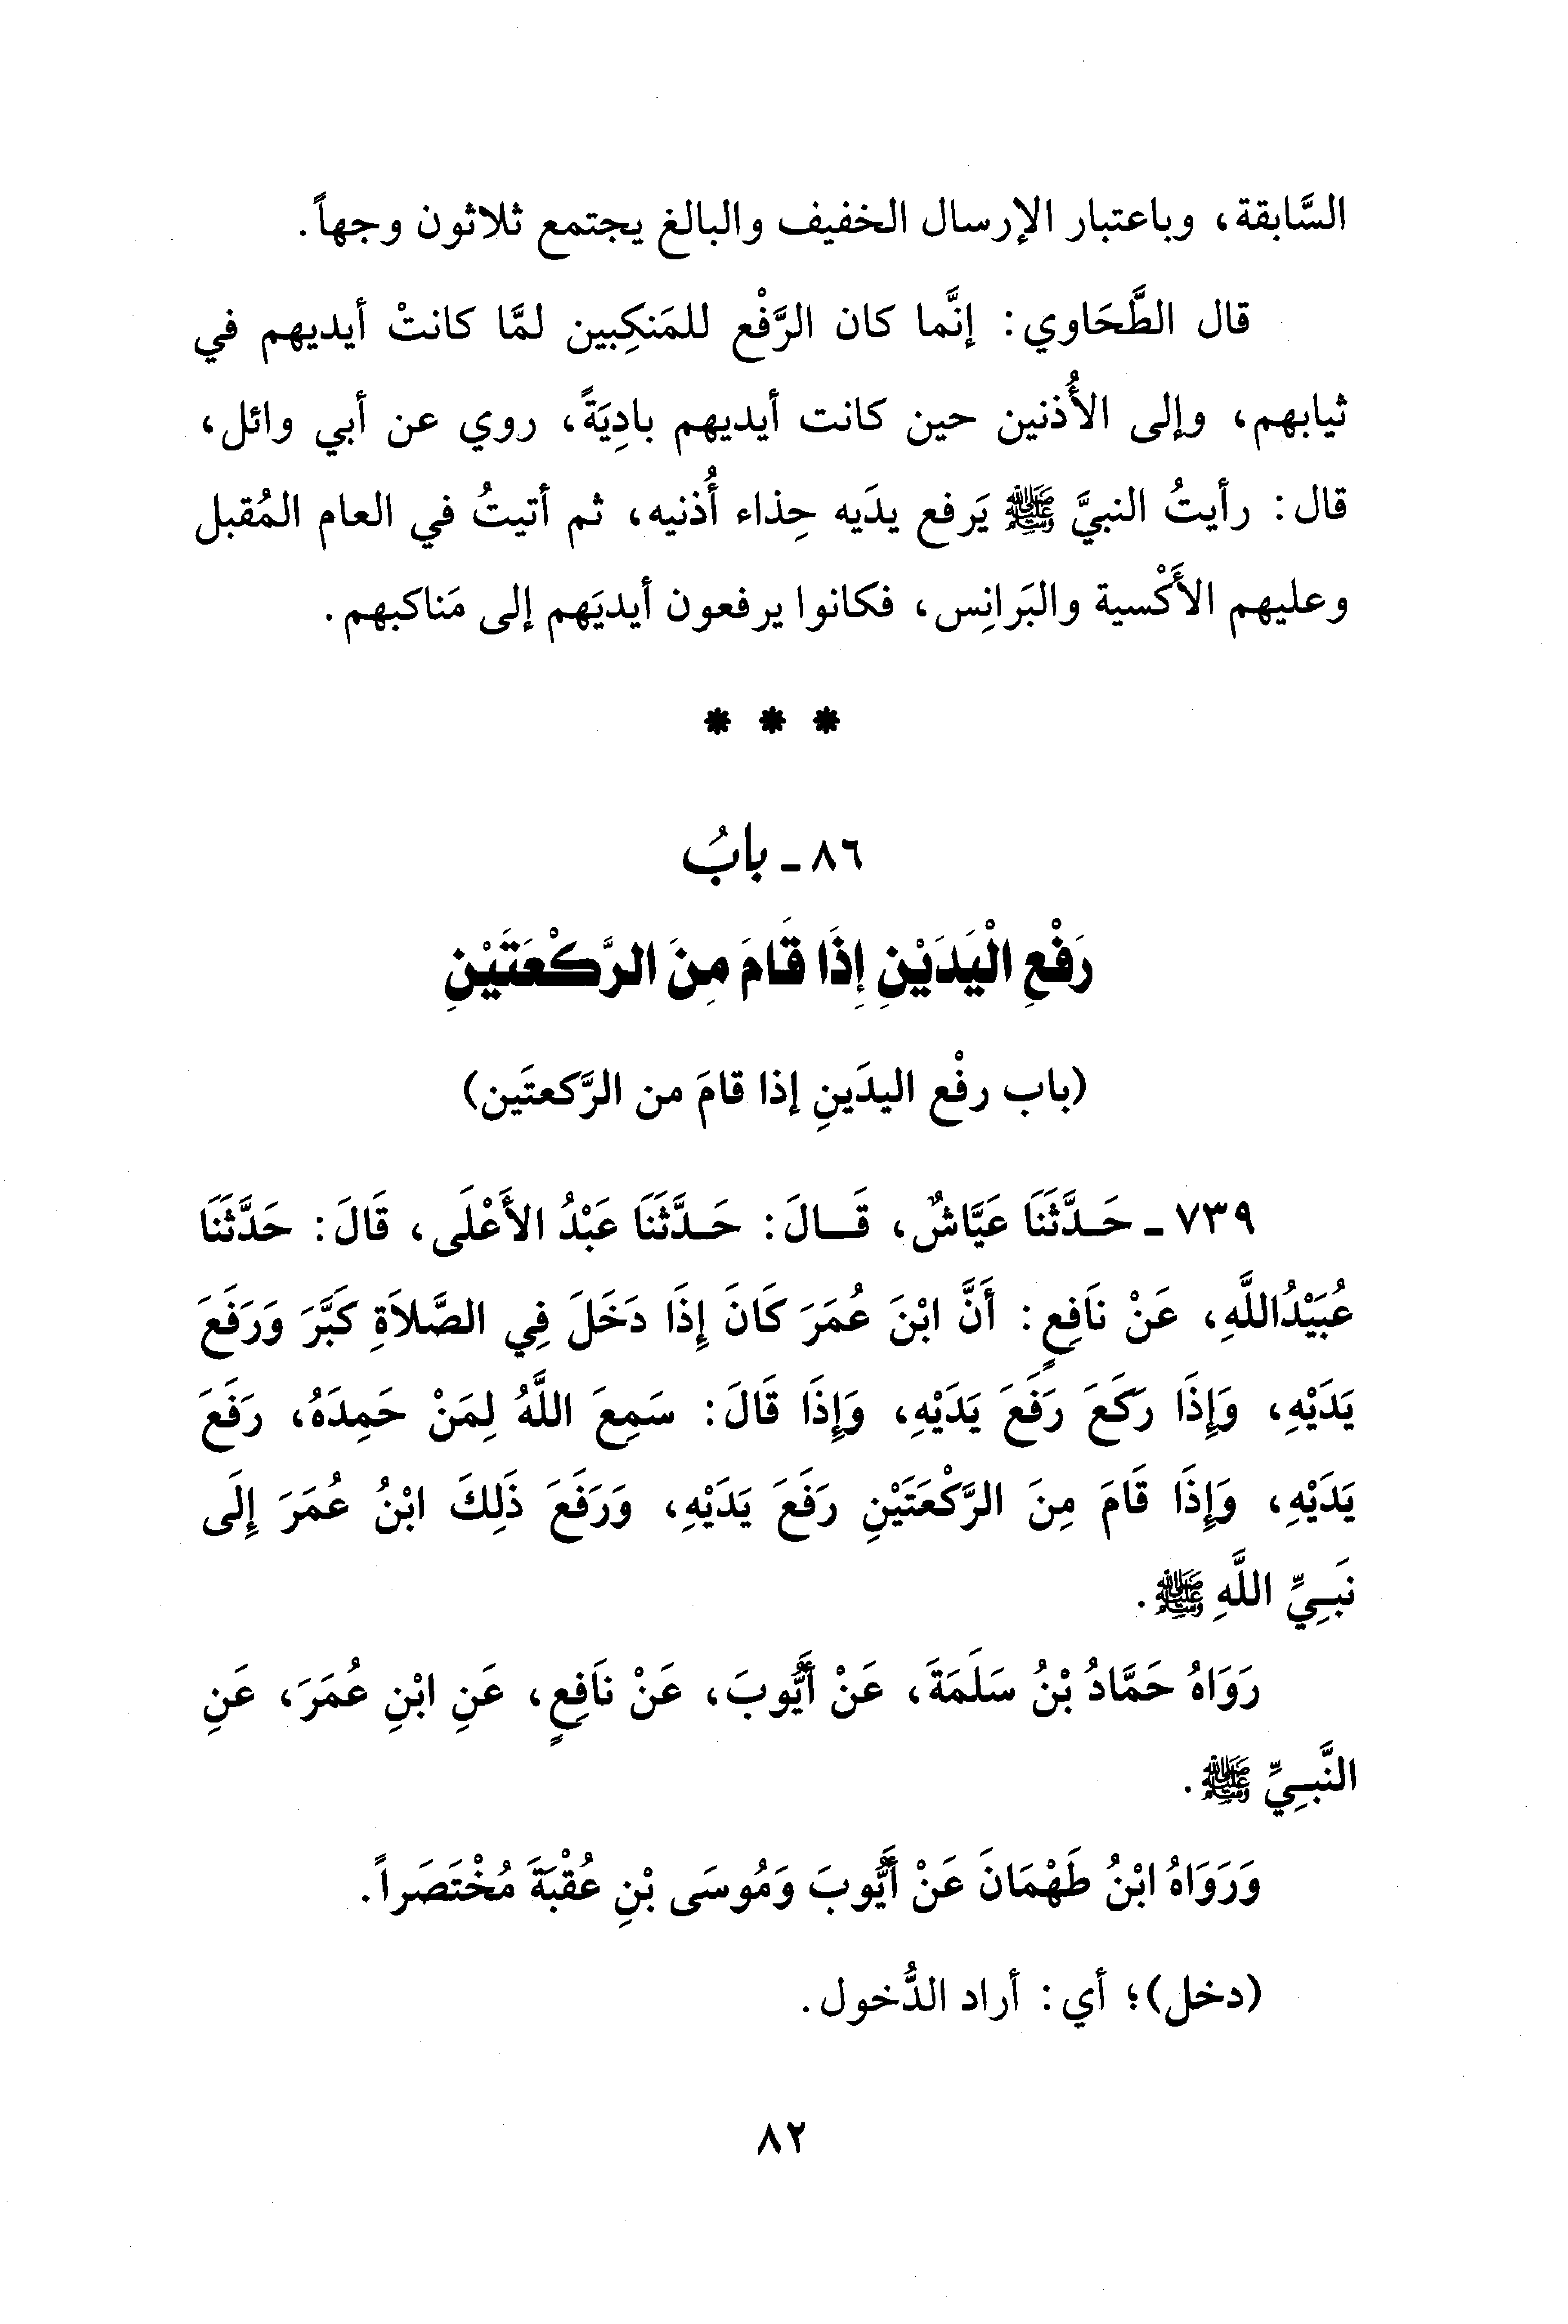 السَّابقة، وباعتبار الإرسال الخفيف والبالغ يجتمع ثلاثون وجهاً.
قال الطَّحَاوي: إنَّما كان الرَّفْع للمَنكِبين لمَّا كانتْ أيديهم في
ثيابهم، وإلى الأُذنين حين كانت أيديهم بادِيَةً، روي عن أبي وائل،
قال: رأيتُ النبيَّ ﷺ يَرفع يدَيه حِذاء أُذنيه، ثم أتيتُ في العام المُقبل
وعليهم الأَكْسية والبَرانِس، فكانوا يرفعون أيديَهم إلى مَناكبهم.
* * *
٨٦ - بابُ
رَفْعِ الْيَدَيْنِ إِذَا قَامَ مِنَ الرَّكْعَتَيْنِ
(باب رفْع اليدَينِ إذا قامَ من الرَّكعتَين)
٧٣٩ - حَدَّثَنَا عَيَّاشٌ، قَالَ: حَدَّثَنَا عَبْدُ الأَعْلَى، قَالَ: حَدَّثَنَا
عُبَيْدُاللَّهِ، عَنْ نَافِعٍ: أَنَّ ابْنَ عُمَرَ كَانَ إِذَا دَخَلَ فِي الصَّلاَةِ كَبَّرَ وَرَفَعَ
يَدَيْهِ، وَإِذَا رَكَعَ رَفَعَ يَدَيْهِ، وَإِذَا قَالَ: سَمِعَ اللَّهُ لِمَنْ حَمِدَهُ، رَفَعَ
يَدَيْهِ، وَإِذَا قَامَ مِنَ الرَّكْعَتَيْنِ رَفَعَ يَدَيْهِ، وَرَفَعَ ذَلِكَ ابْنُ عُمَرَ إِلَى
نَبِيِّ اللَّهِ ﷺ.
رَوَاهُ حَمَّادُ بْنُ سَلَمَةَ، عَنْ أَيُّوبَ، عَنْ نَافِعٍ، عَنِ ابْنِ عُمَرَ، عَنِ
النَّبِيِّ ﷺ.
وَرَوَاهُ ابْنُ طَهْمَانَ عَنْ أَيُّوبَ وَمُوسَى بْنِ عُقْبَةَ مُخْتَصَراً.
(دخل)؛ أي: أراد الدُّخول.
٨٢